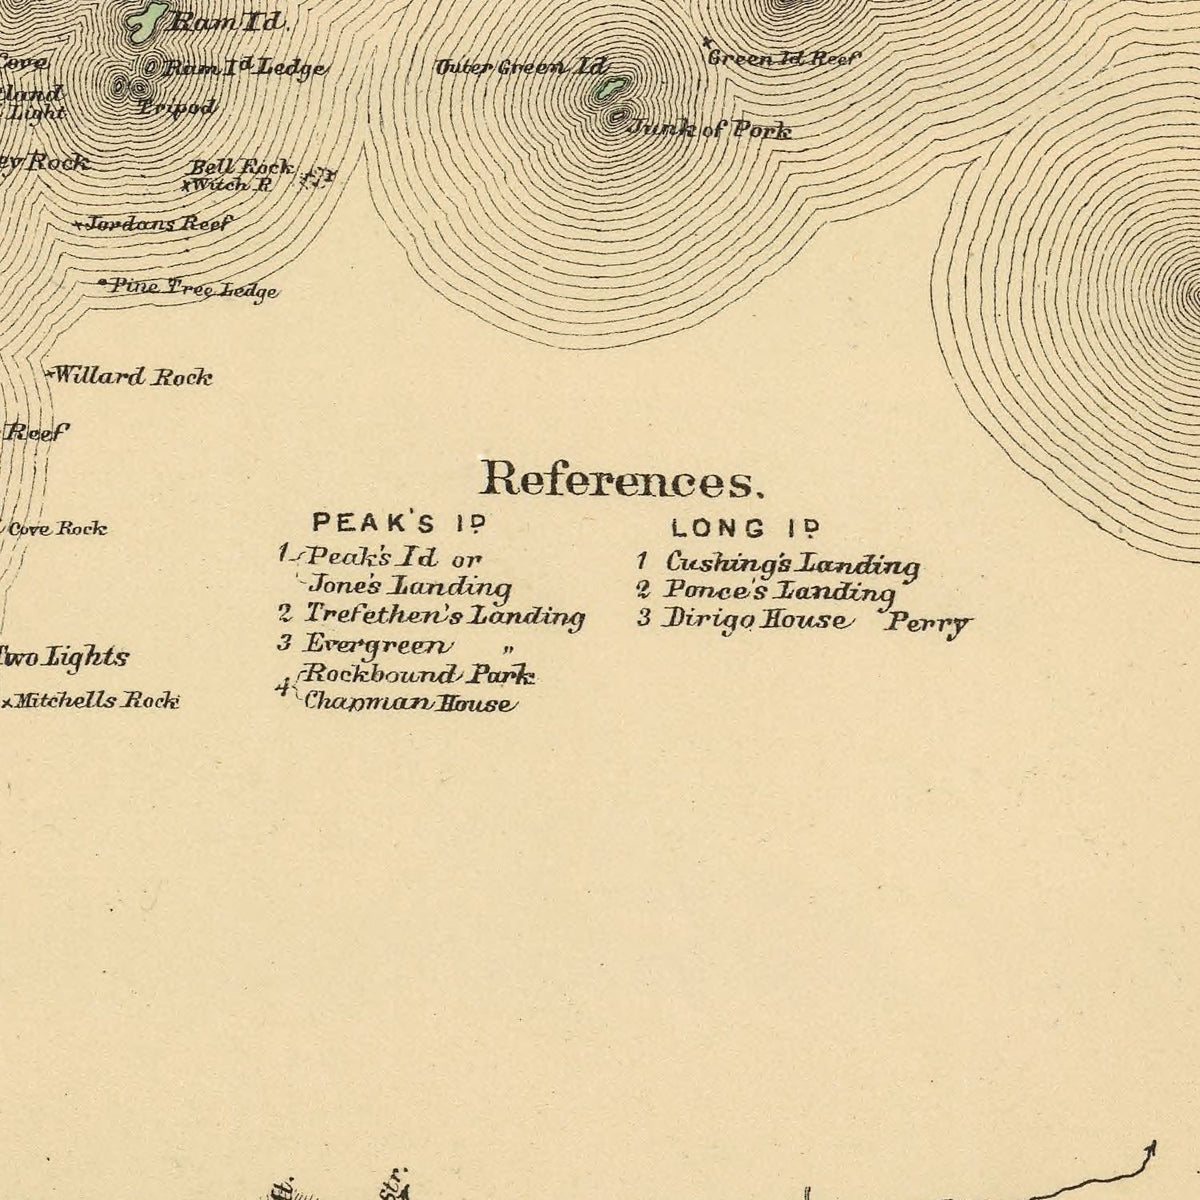 Ram Id.
Cove
Ram Id Ledge
Outer Green Id
Green Id Reef
Light
Tripod
Junk of Pork
Rock
Bell Rock
Witch R
Jordans Reef
Pine Tree Ledge
Willard Rock
Reef
References.
PEAK'S ID
LONG ID
Cove Rock
1 Peak's Id or
Jone's Landing
2 Trefethen's Landing
3 Evergreen "
4 Rockbound Park
Chapman House
1 Cushing's Landing
2 Ponce's Landing
3 Dirigo House Perry
Two Lights
Mitchells Rock
Str.